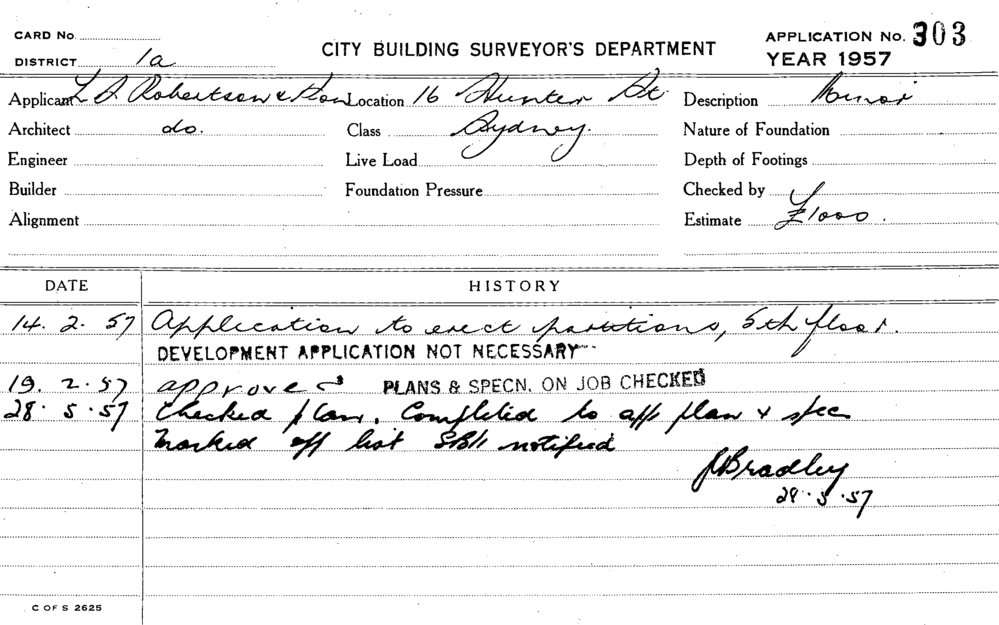 CARD No.
CITY BUILDING SURVEYOR'S DEPARTMENT
APPLICATION No. 303
DISTRICT 1a
YEAR 1957
Applicant L. S. Robertson & Son Location 16 Hunter St Description Minor
Architect do. Class Sydney. Nature of Foundation
Engineer Live Load Depth of Footings
Builder Foundation Pressure Checked by
Alignment Estimate £1000.
DATE HISTORY
14. 2. 57 Application to erect partitions, 5th floor.
DEVELOPMENT APPLICATION NOT NECESSARY
19. 2. 57 approved PLANS & SPECN. ON JOB CHECKED
28. 5. 57 Checked plan. Completed to app plan & spec
Marked off list notified
Bradley
28. 5. 57
C OF S 2625